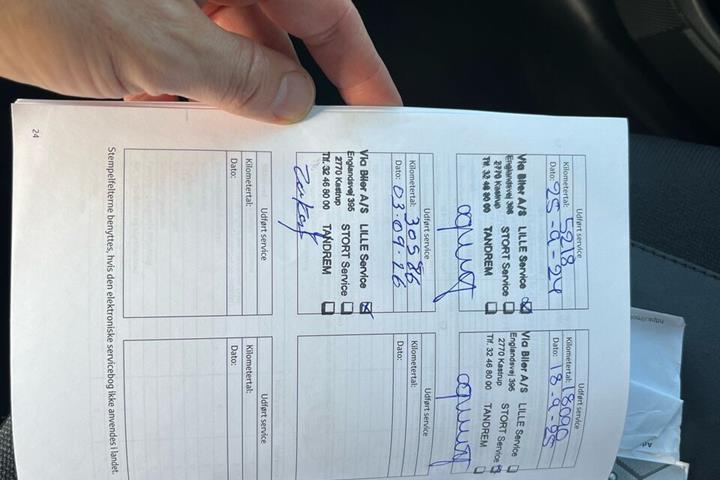 Udført service
Kilometertal: 5218
Dato: 25-9-24
Via Biler A/S LILLE Service
Englandsvej 395 STORT Service
2770 Kastrup
Tlf. 32 46 80 00 TANDREM
Udført service
Kilometertal: 18090
Dato: 18-9-25
Via Biler A/S LILLE Service
Englandsvej 395 STORT Service
2770 Kastrup
Tlf. 32 46 80 00 TANDREM
Udført service
Kilometertal: 30586
Dato: 03.09.26
Via Biler A/S LILLE Service
Englandsvej 395 STORT Service
2770 Kastrup
Tlf. 32 46 80 00 TANDREM
Udført service
Kilometertal:
Dato:
Udført service
Kilometertal:
Dato:
Udført service
Kilometertal:
Dato:
Stempelfelterne benyttes, hvis den elektroniske servicebog ikke anvendes i landet.
24